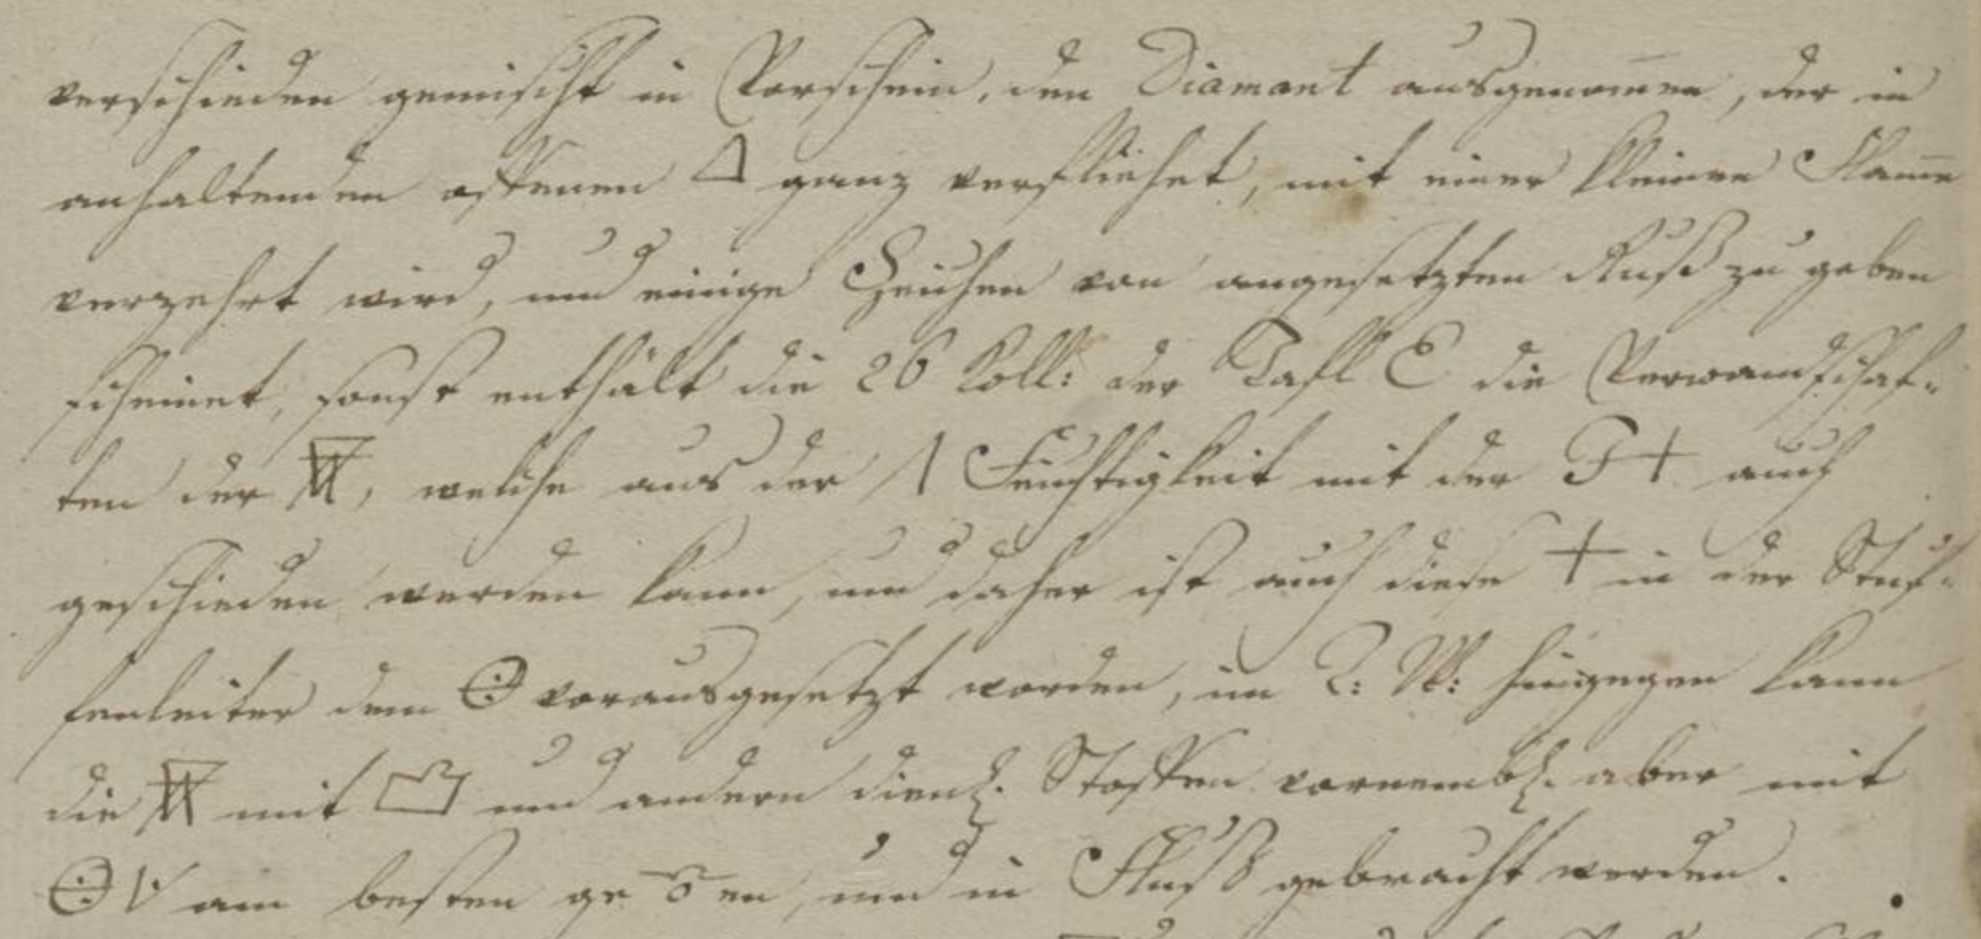 verschieden gemischt in Vorschein, den Diamant ausgenom̄en, der in
anhaltenden offenen 🜂 ganz verfliehet, mit einer kleinen Flam̄e
verzehrt wird, und einige Zeichen von angesetzten Ruß zu geben
scheinet, sonst enthält die 26 Koll: der Tafl E die Verwandschaf-
ten der, welche aus der Feuchtigkeit mit der + auch
geschieden werden kann, und daher ist auch diese + in der Stuf-
fenleiter dem vorausgesetzt worden, im T: W: hingegen kann
die mit und andern dienl. Stoffen vornembl. aber mit
am besten ge en, und in Fluß gebracht werden.